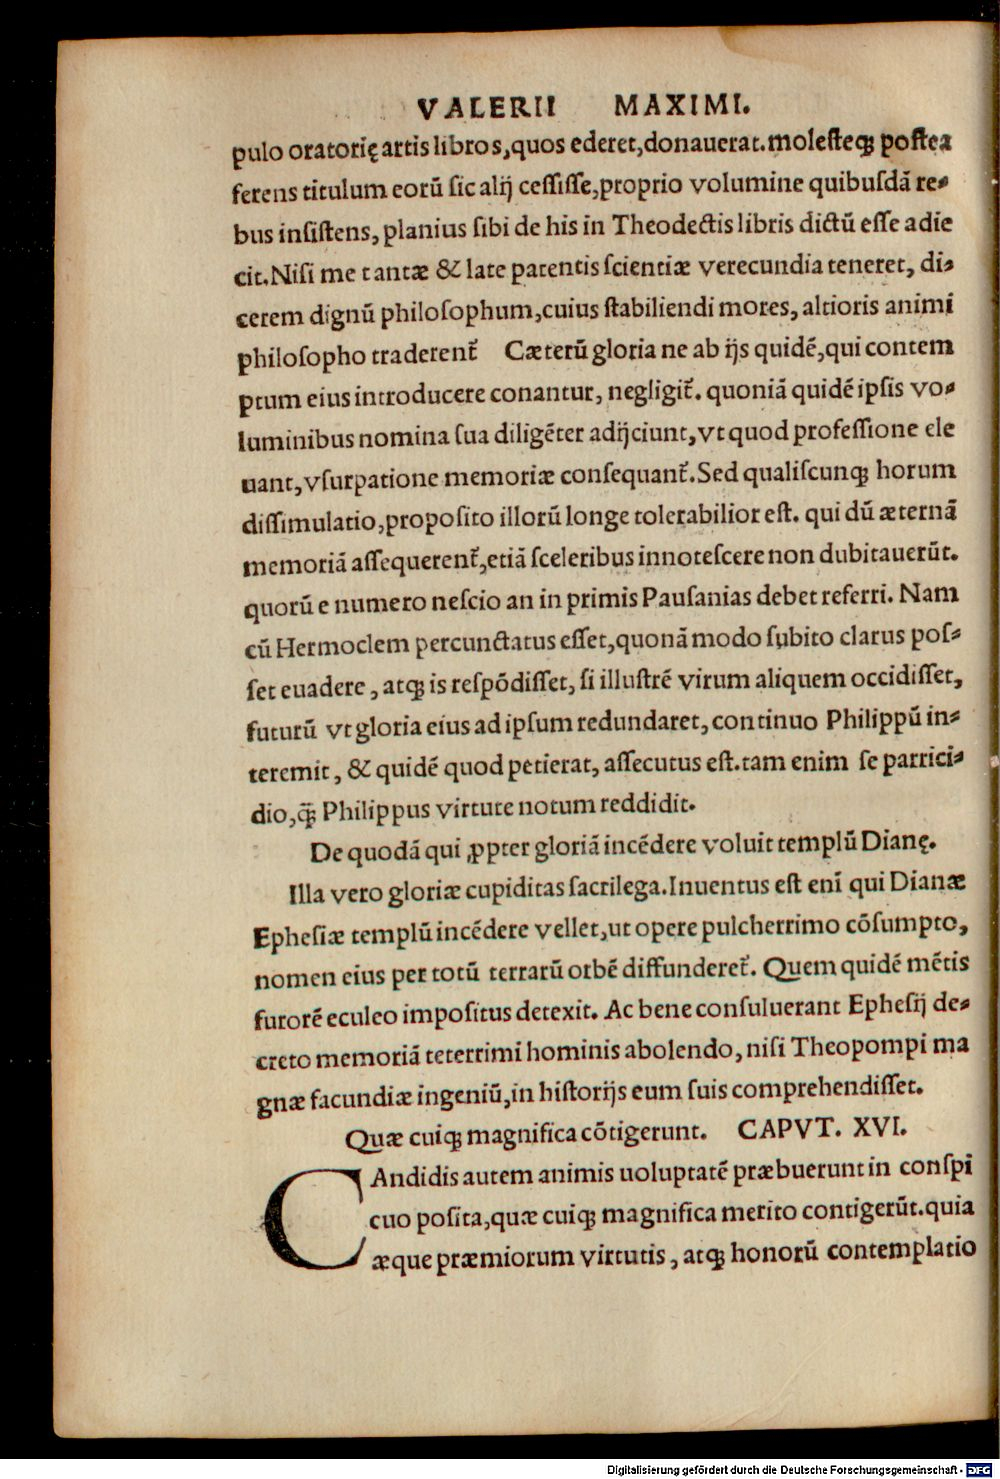 VALERII MAXIMI.
pulo oratorię artis libros,quos ederet,donauerat.molesteqꝫ postea
ferens titulum eorū sic alij cessisse,proprio volumine quibusdā re-
bus insistens, planius sibi de his in Theodectis libris dictū esse adie
cit.Nisi me tantæ & late patentis scientiæ verecundia teneret, di-
cerem dignū philosophum,cuius stabiliendi mores, altioris animi
philosopho traderent᷑ Cæterū gloria ne ab ijs quidē,qui contem
ptum eius introducere conantur, negligit᷑. quoniā quidē ipsis vo-
luminibus nomina sua diligēter adijciunt,vt quod professione ele
uant,vsurpatione memoriæ consequant᷑.Sed qualiscunqꝫ horum
dissimulatio,proposito illorū longe tolerabilior est. qui dū æternā
memoriā assequerent᷑,etiā sceleribus innotescere non dubitauerūt.
quorū e numero nescio an in primis Pausanias debet referri. Nam
cū Hermoclem percunctatus esset,quonā modo subito clarus pos-
set euadere, atqꝫ is respōdisset, si illustrē virum aliquem occidisset,
futurū vt gloria eius ad ipsum redundaret, continuo Philippū in-
teremit, & quidē quod petierat, assecutus est.tam enim se parrici-
dio,q̄ꝫ Philippus virtute notum reddidit.
De quodā qui ꝓpter gloriā incēdere voluit templū Dianę.
Illa vero gloriæ cupiditas sacrilega.Inuentus est enī qui Dianæ
Ephesiæ templū incēdere vellet,ut opere pulcherrimo cōsumpto,
nomen eius per totū terrarū orbē diffunderet᷑. Quem quidē mētis
furorē eculeo impositus detexit. Ac bene consuluerant Ephesij de-
creto memoriā teterrimi hominis abolendo, nisi Theopompi ma
gnæ facundiæ ingeniū,in historijs eum suis comprehendisset.
Quæ cuiqꝫ magnifica cōtigerunt. CAPVT. XVI.
CAndidis autem animis uoluptatē præbuerunt in conspi
cuo posita,quæ cuiqꝫ magnifica merito contigerūt.quia
æque præmiorum virtutis, atqꝫ honorū contemplatio
Digitalisierung gefördert durch die Deutsche Forschungsgemeinschaft - DFG